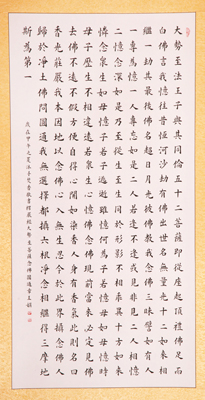 大勢至法王子與其同倫五十二菩薩即從座起頂禮佛足而
白佛言我憶往昔恒河沙劫有佛出世名無量光十二如來相
繼一劫其最後佛名超日月光彼佛教我念佛三昧譬如有人
一專為憶一人專忘如是二人若逢不逢或見非見二人相憶
二憶念深如是乃至從生至生同於形影不相乖異十方如來
憐念眾生如母憶子若子逃逝雖憶何為子若憶母如母憶時
母子歷生不相違遠若眾生心憶佛念佛現前當來必定見佛
去佛不遠不假方便自得心開如染香人身有香氣此則名曰
香光莊嚴我本因地以念佛心入無生忍今於此界攝念佛人
歸於淨土佛問圓通我無選擇都攝六根淨念相繼得三摩地
斯為第一
大勢至菩薩念佛圓通章